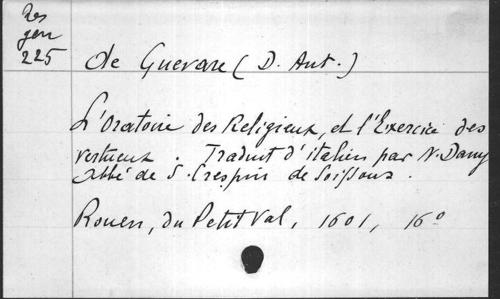 Res
gen
225
de Guevare (D. Ant.)
L'Oratoire des Religieux, et l'Exercice des
vertueux. Traduit d'italien par N. Dany
Abbé de S. Crespin de Soissons.
Rouen, du Petit Val, 1601, 16º